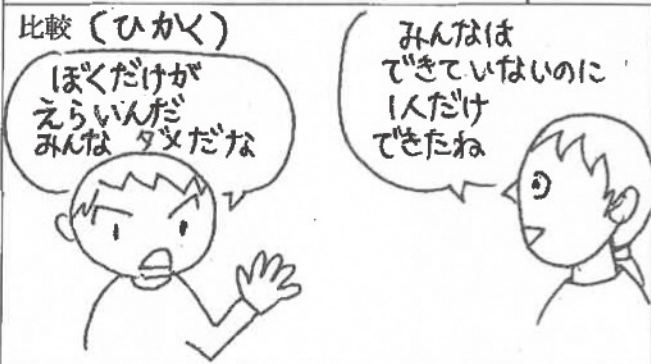 比較（ひかく）
ぼくだけが
えらいんだ
みんな ダメだな
みんなは
できていないのに
1人だけ
できたね